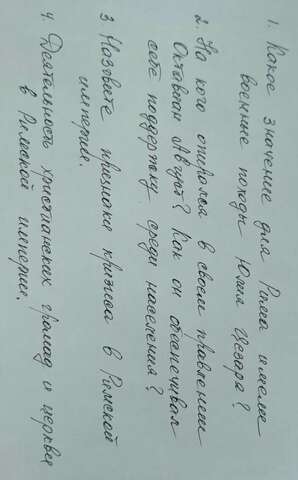 1. Какое значение для Рима имели
военные походы Юлия Цезаря?
2. На кого опирался в своем правлении
Октавиан Август? Как он обеспечивал
себе поддержку среди населения?
3 Назовите признаки кризиса в Римской
империи.
4. Деятельность христианских громад и церквы
в Римской империи.